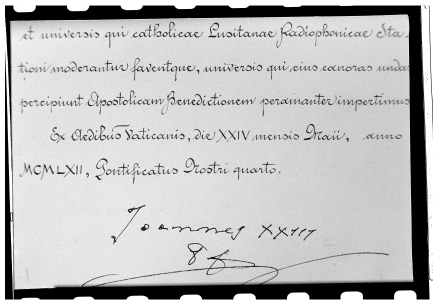 et universis qui catholicae Lusitanae Radiophonicae Sta-
tioni moderantur faventque, universis qui eius canoras undas
percipiunt Apostolicam Benedictionem peramanter impertimus.
Ex Aedibus Vaticanis, die XXIV mensis Maii, anno
MCMLXII, Pontificatus Nostri quarto.
Ioannes XXIII